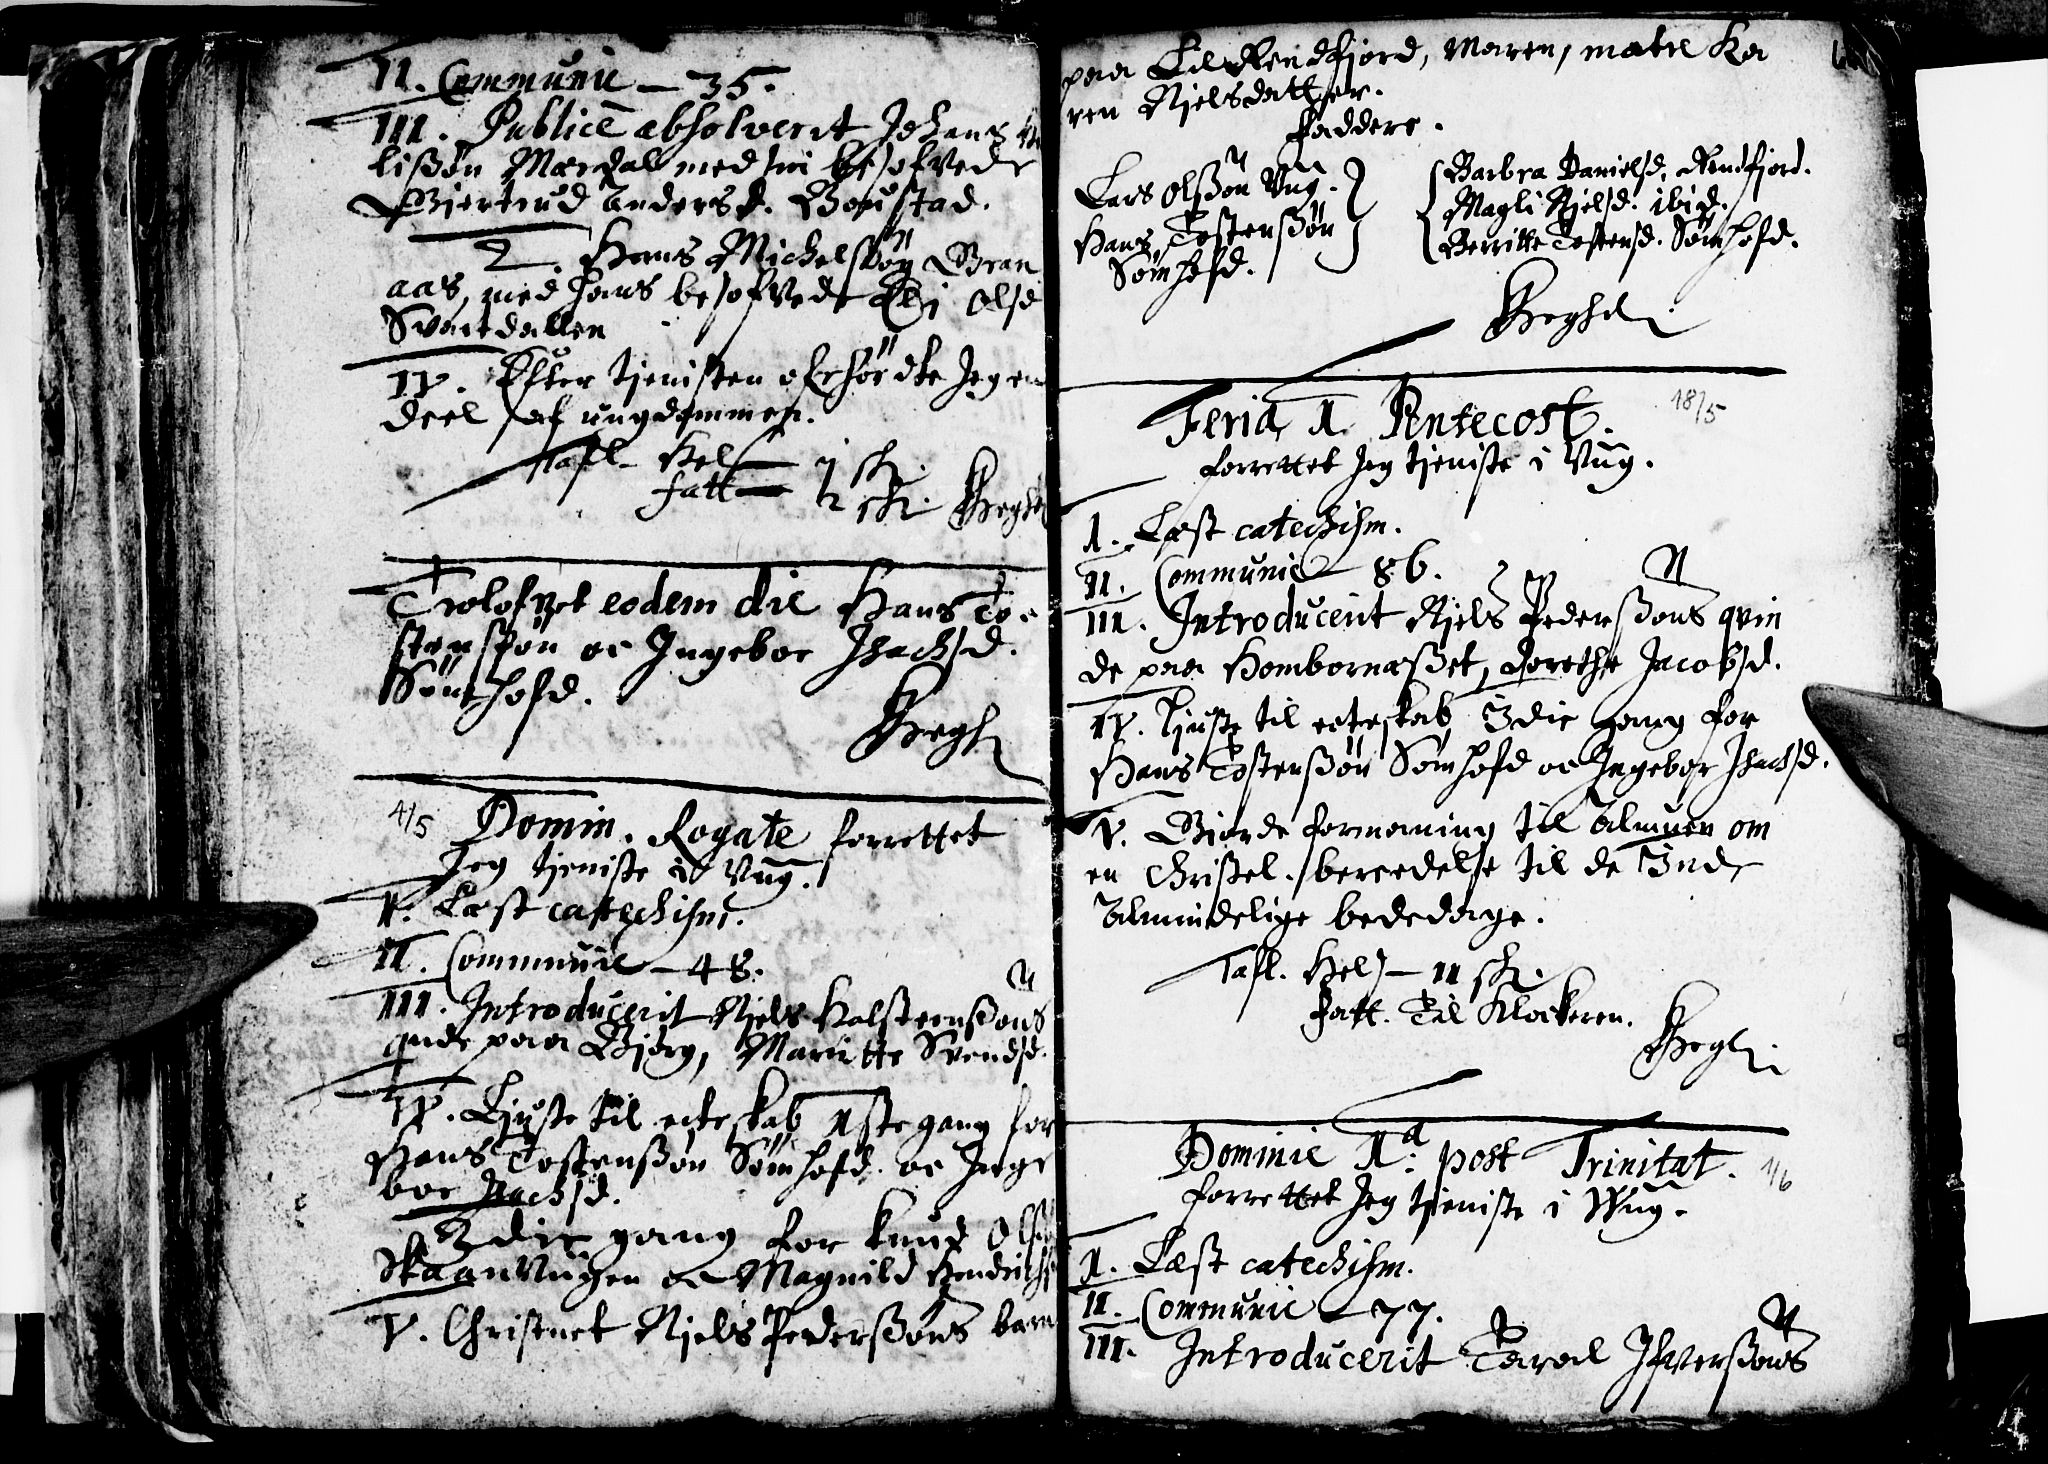 II. Communic — 35.
III. Publicè absolverit Johans
lissøn Mærdal med sin besofvede
Giertrud Anders d. Boustad.
2 Hans Michelssøn Gran
aas, med hans besofvede Eli Olsd
Svartdallen
IV. Efter tjenisten oferhørdte Jeg en
deel af ungdommen.
Tafl. Hel — 7 sk.
fatt — ½ sk. Hegh
Trolofvet eodem die Hans To
stenssøn oc Ingebor Isachsd.
Sømhofd.
Hegh
4/5 Domin. Rogate forrettet
Jeg tjeniste i Vug.
I. Læst catechism.
II. Communic — 48.
III. Introducerit Njels Halsteenssøns
qvinde paa Bjørg, Maritte Svendsd.
IV. Liuste til ecteskab 1ste gang for
Hans Tostenssøn Sømhofd oc Inge
bor Isachsd.
3die gang for Knud Ols
Skaanvugen oc Magnild Hendrichs
V. Christnet Njels Pederssøns barn
paa Lil Rendfjord, Maren, matr Ka
ren Njelsdatter.
faddere.
Lars Olssøn Vug.
Hans Tostenssøn
Sømhofd.
Barbra Danielsd, Rendfjord.
Magli Njelsd. ibid.
Berritte Tostensd. Sømhofd.
Hegh
Feria 1. Pentecost. 18/5
forrettet Jeg tjeniste i Vug.
I. Læst catechism.
II. Communic — 86.
III. Introducerit Njels Pederssøns qvin
de paa Hombornæsset, Dorethe Jacobsd.
IV. Liuste til ecteskab 3die gang for
Hans Tostenssøn Sømhofd oc Ingebor Isachsd.
V. Giorde formaning til Almuen om
en Christel. beredelse til de 3nde
Almindelige bededage.
Tafl. Hel — 11 sk.
fatt. Til Klockeren.
Hegh
Dominic 1a: post Trinitat. 1/6
forrettet Jeg tjeniste i Wug.
I. Læst catechism.
II. Communic — 77.
III. Introducerit Taral Ifverssøns